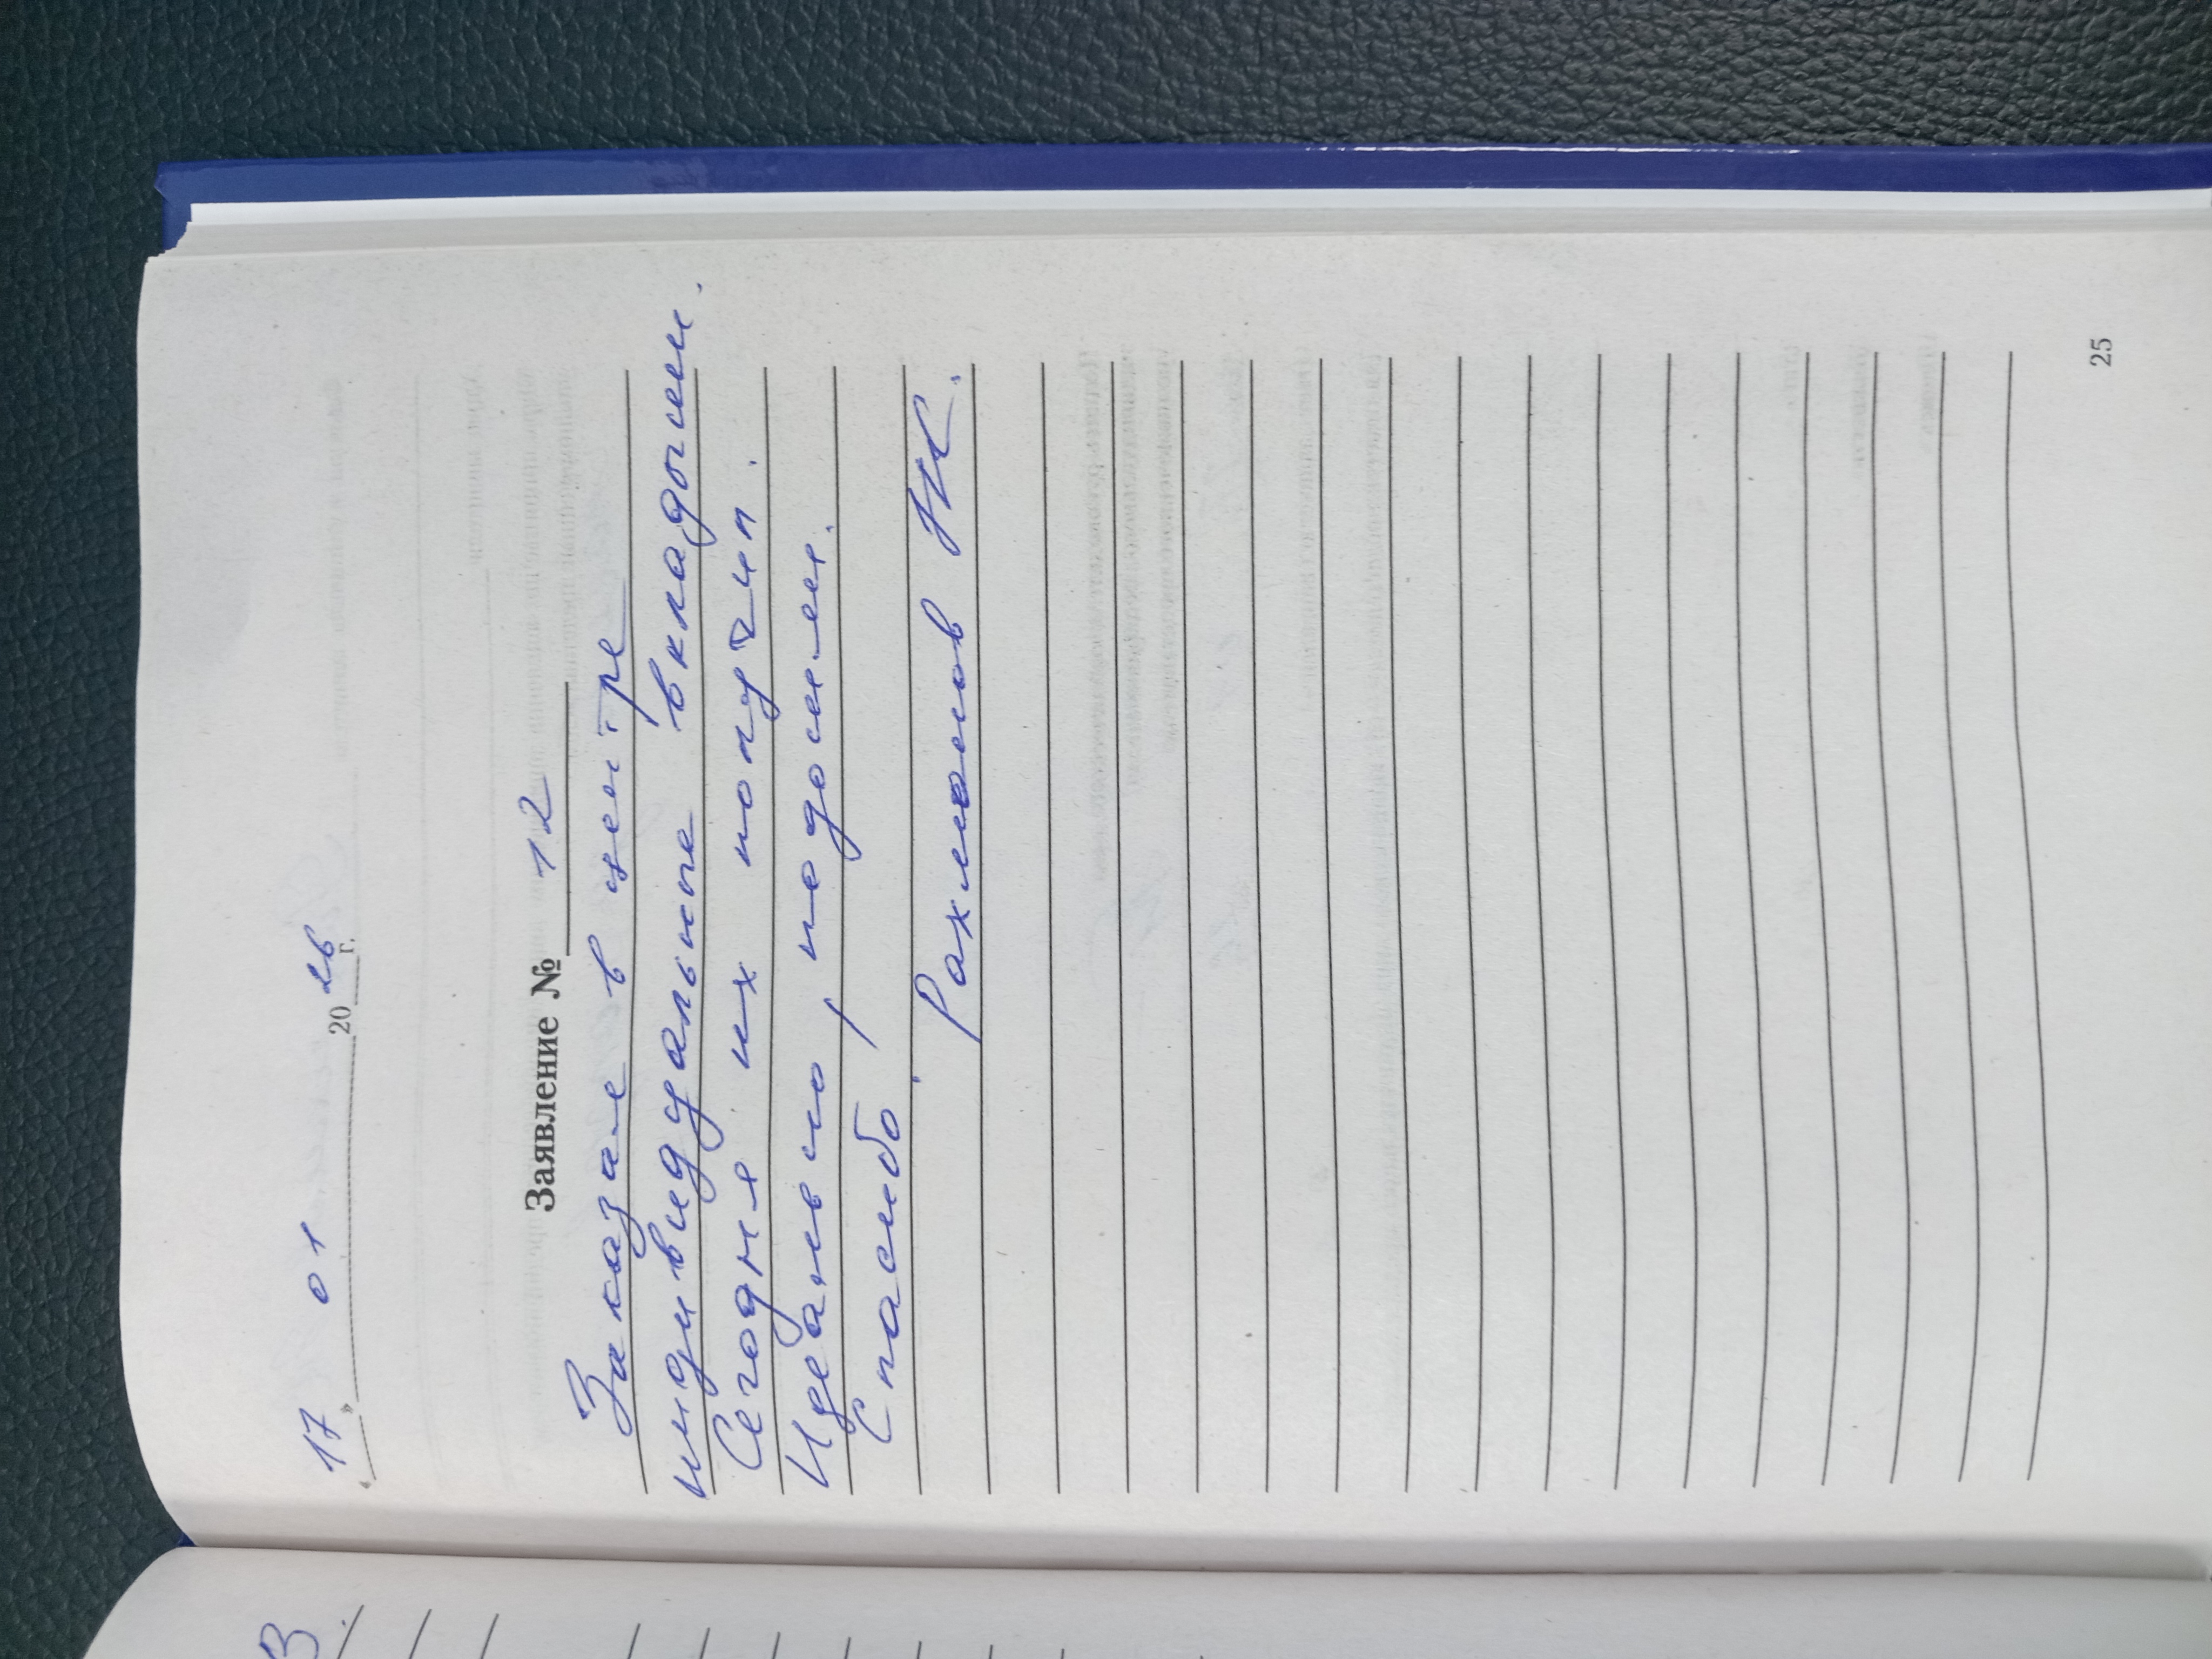 « 17 » 01 2026 г.
Заявление № 12
Заказал в центре
индивидуальные вкладыши.
Сегодня их получил.
Идеально, подошли.
Спасибо.
Рахманов Н.К.
25
В